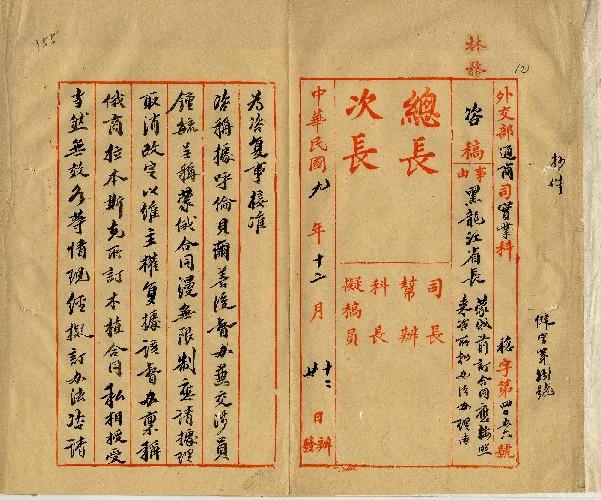 林務
12
155
抄件
外交部通商司實業科
咨稿
事由
黑龍江省長
蒙俄前訂合同應按照
來咨所擬辦法辦理由
字第四百五六號
總長
次長
司長
幫辦
科長
擬稿員
中華民國九年十二月
日辦發
為咨復事接准
咨稱據呼倫貝爾善後督辦兼交涉員
鍾毓呈稱蒙俄合同漫無限制應請據理
取消改定以維主權復據該督辦稟稱
俄商拉本斯克所訂木植合同私相授受
當然無效各等情現經擬訂辦法咨請